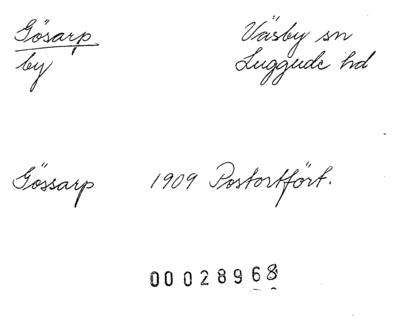 Gösarp Väsby sn
by Luggude hd
Gössarp 1909 Postortfört.
00028968